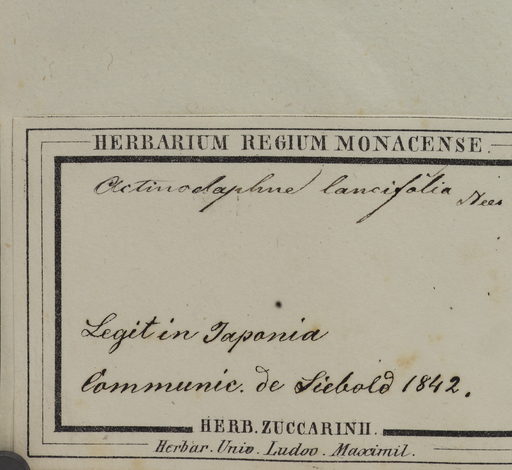 HERBARIUM REGIUM MONACENSE.
Actinodaphne lancifolia Nees
Legit in Japonia
Communic. de Siebold 1842.
HERB. ZUCCARINII.
Herbar. Univ. Ludov. Maximil.